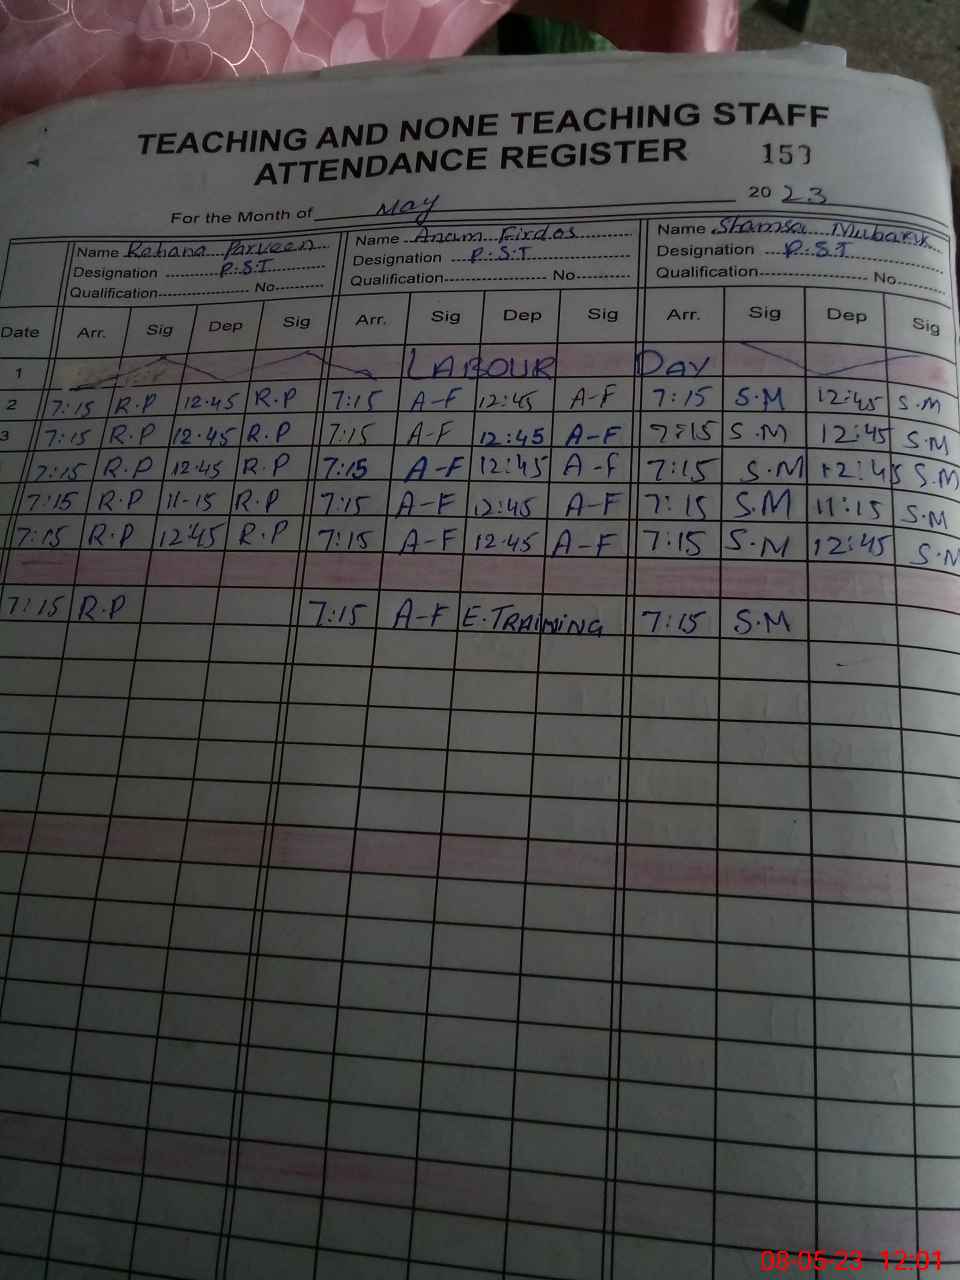 TEACHING AND NONE TEACHING STAFF
ATTENDANCE REGISTER 159
For the Month of May 2023
Name Rehana Parveen Name Anam Firdos Name Shamsa Mubarik
Designation P.S.T Designation P.S.T Designation P.S.T
Qualification No Qualification No Qualification No
Date Arr. Sig Dep Sig Arr. Sig Dep Sig Arr. Sig Dep Sig
1 LABOUR DAY
2 7:15 R.P 12.45 R.P 7:15 A-F 12:45 A-F 7:15 S.M 12:45 S.M
3 7:15 R.P 12.45 R.P 7:15 A-F 12:45 A-F 7:15 S.M 12:45 S.M
7:15 R.P 12.45 R.P 7:15 A-F 12:45 A-F 7:15 S.M 12:45 S.M
7:15 R.P 11-15 R.P 7:15 A-F 12:45 A-F 7:15 S.M 11:15 S.M
7:15 R.P 12:45 R.P 7:15 A-F 12.45 A-F 7:15 S.M 12:45 S.M
7:15 R.P 7:15 A-F E.TRAINING 7:15 S.M
08-05-23 12:01